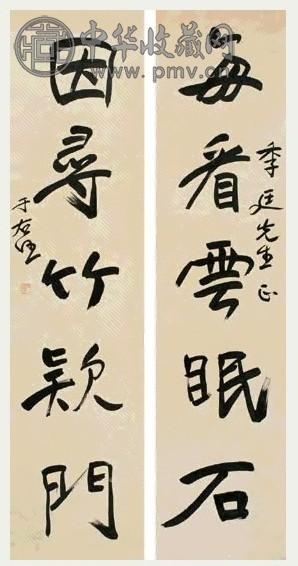 中华收藏网
www.pmv.cn
每看雲眠石
季廷先生正
因尋竹欵門
于右任